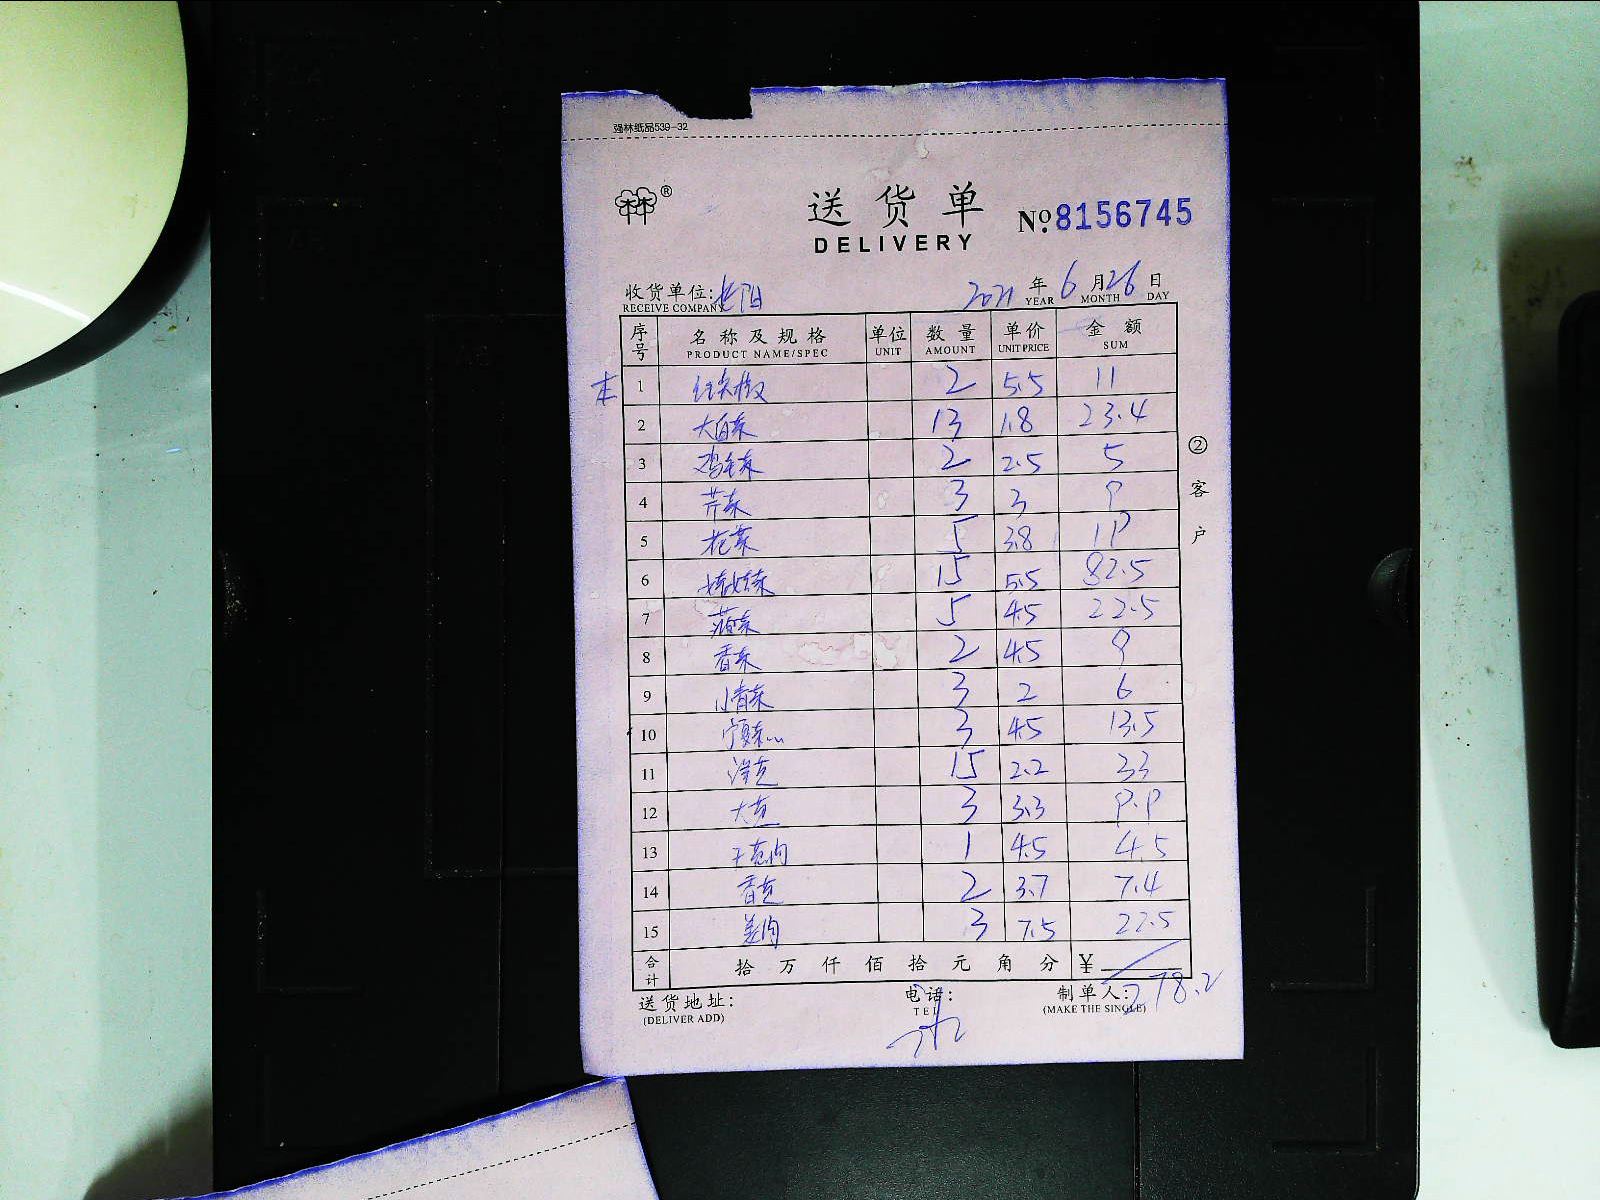 强林纸品539-32
林林®
送货单 Nº 8156745
DELIVERY
收货单位: 2021年6月26日
RECEIVE COMPANY YEAR MONTH DAY
序号 名称及规格 单位 数量 单价 金额
PRODUCT NAME/SPEC UNIT AMOUNT UNIT PRICE SUM
1 红尖椒 2 5.5 11
2 大白菜 13 1.8 23.4
3 鸡毛菜 2 2.5 5
4 芹菜 3 3 9
5 花菜 5 3.8 19
6 娃娃菜 15 5.5 82.5
7 菠菜 5 4.5 22.5
8 香菜 2 4.5 9
9 小青菜 3 2 6
10 宁夏菜… 3 4.5 13.5
11 洋芋 15 2.2 33
12 大葱 3 3.3 9.9
13 1 4.5 4.5
14 香芹 2 3.7 7.4
15 3 7.5 22.5
合计 拾万仟佰拾元角分 ¥ 278.2
送货地址: 电话: 制单人:
(DELIVER ADD) TEL (MAKE THE SINGLE)
②客户